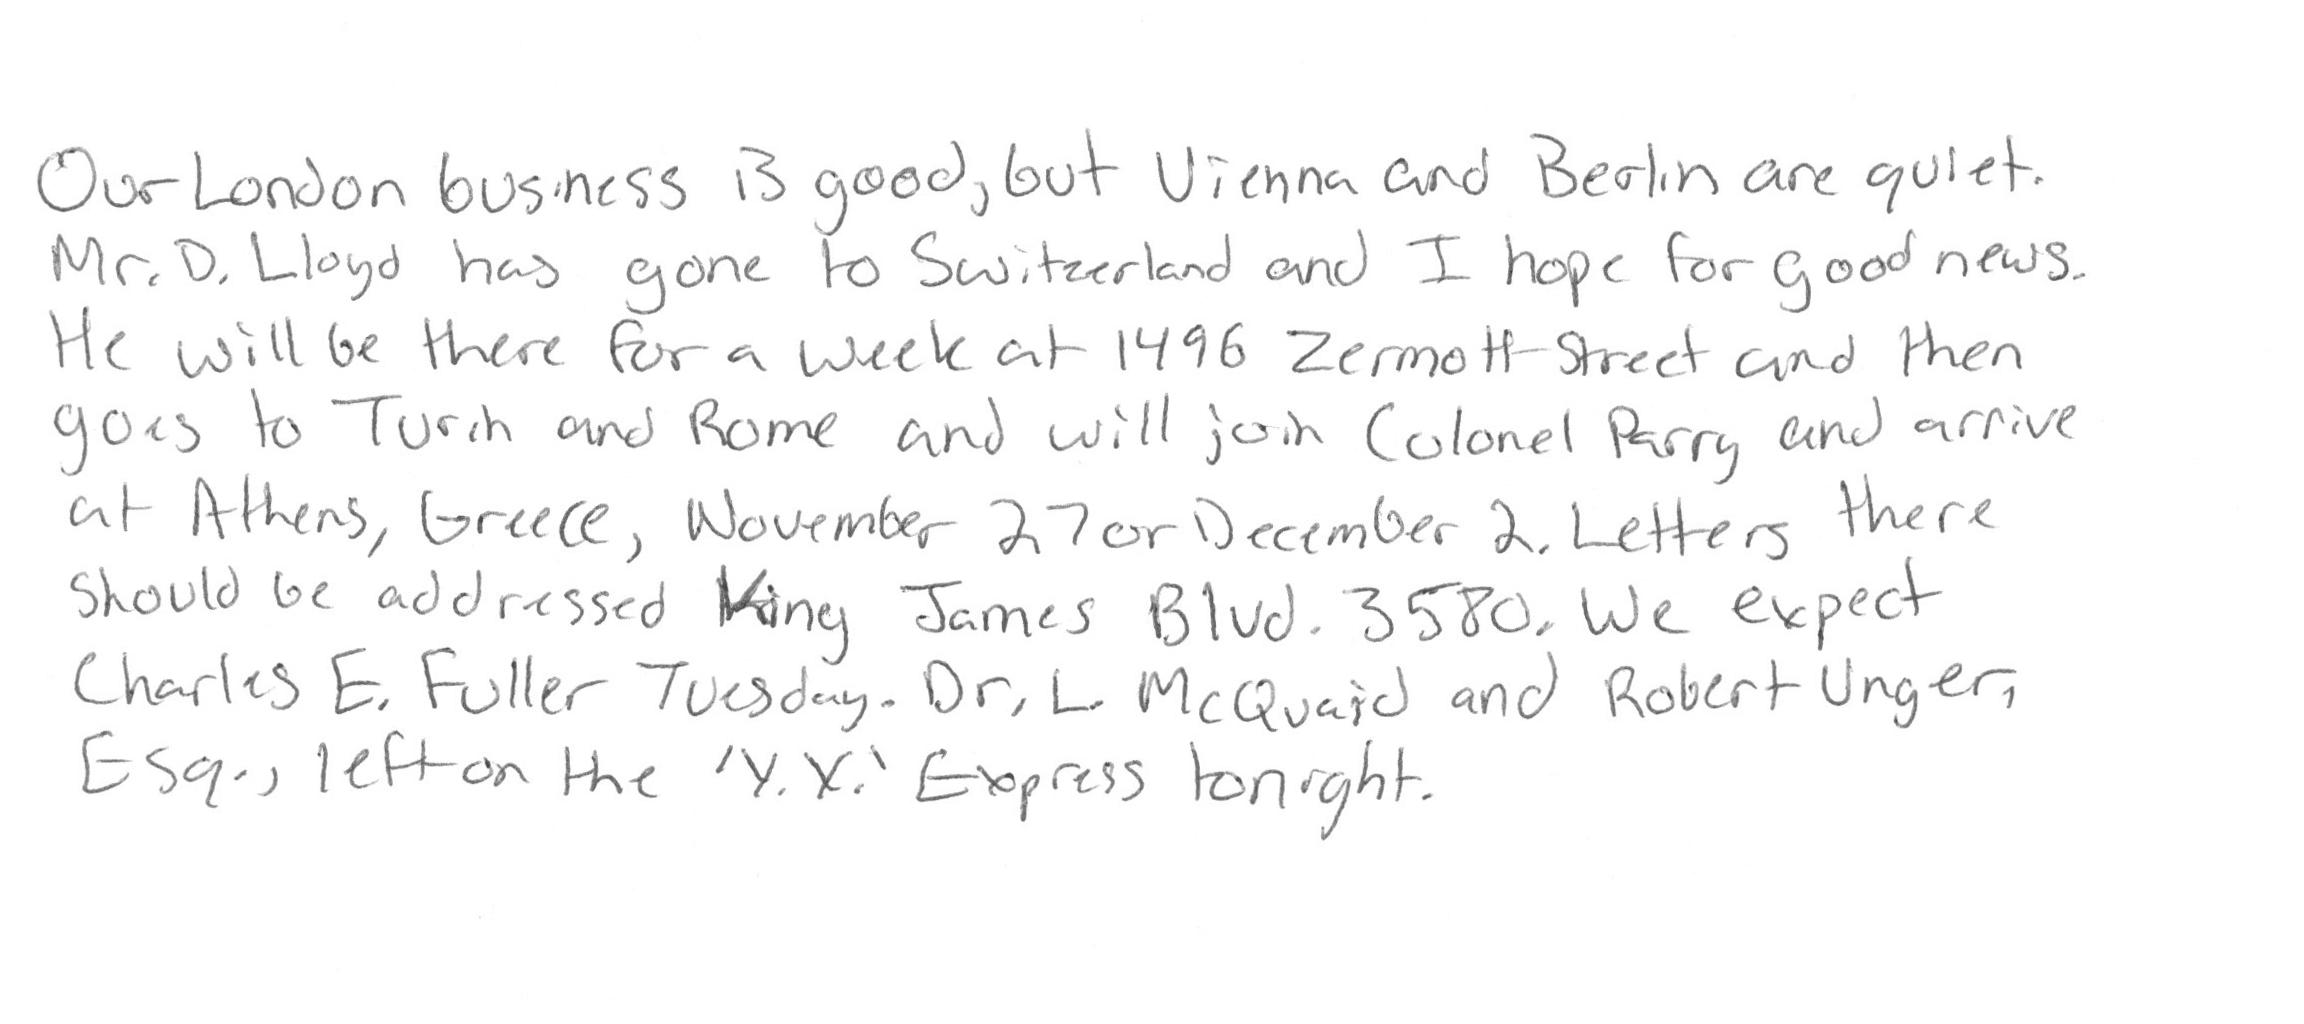 Our London business is good, but Vienna and Berlin are quiet.
Mr. D. Lloyd has gone to Switzerland and I hope for good news.
He will be there for a week at 1496 Zermott Street and then
goes to Turin and Rome and will join Colonel Parry and arrive
at Athens, Greece, November 27 or December 2. Letters there
should be addressed King James Blvd. 3580. We expect
Charles E. Fuller Tuesday. Dr. L. McQuaid and Robert Unger,
Esq., left on the 'Y.X.' Express tonight.